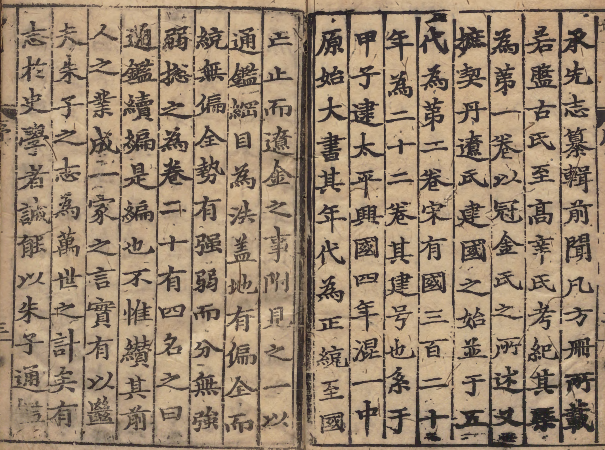 承先志纂輯前聞凡方冊所載
若盤古氏至髙辛氏考紀其槩
為第一卷以冠金氏之所述又
摭契丹遼氏建國之始並于五
代為第二卷宋有國三百二十
年為二十二卷其建号也系于
甲子逮太平興國四年混一中
原始大書其年代為正綂至國
正止而遼金之事附見之一以
通鑑綱目為法盖地有偏全而
統無偏全勢有强弱而分無強
弱捴之為卷二十有四名之曰
通鑑續編是編也不惟纘其前
人之業成一家之言實有以繼
夫朱子之志為萬世之計矣有
志於史學者誠能以朱子通